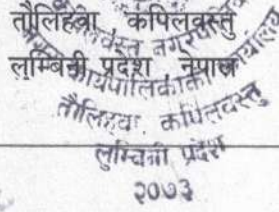 तौलिहवा कपिलवस्तु
लुम्बिनी प्रदेश नेपाल
कपिलवस्तु नगरपालिका
नगर कार्यपालिकाको कार्यालय
तौलिहवा कपिलवस्तु
लुम्बिनी प्रदेश
२०७३